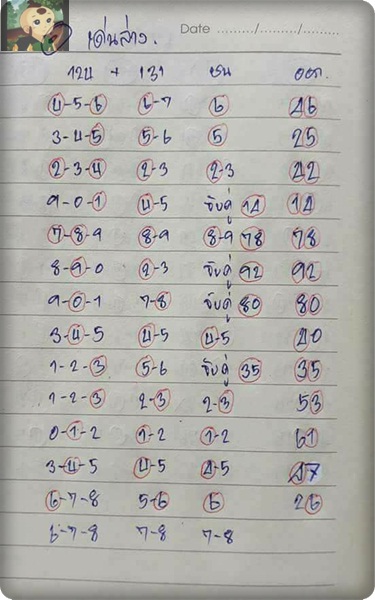 เด่นล่าง.
Date ........./........./.........
124 + 131 ชน ออก.
4-5-6 6-7 6 46
3-4-5 5-6 5 25
2-3-4 2-3 2-3 42
9-0-1 4-5 จับคู่ 14 14
7-8-9 8-9 8-9 78 78
8-9-0 2-3 จับคู่ 92 92
9-0-1 7-8 จับคู่ 80 80
3-4-5 4-5 4-5 40
1-2-3 5-6 จับคู่ 35 35
1-2-3 2-3 2-3 53
0-1-2 1-2 1-2 61
3-4-5 4-5 4-5 47
6-7-8 5-6 6 26
6-7-8 7-8 7-8